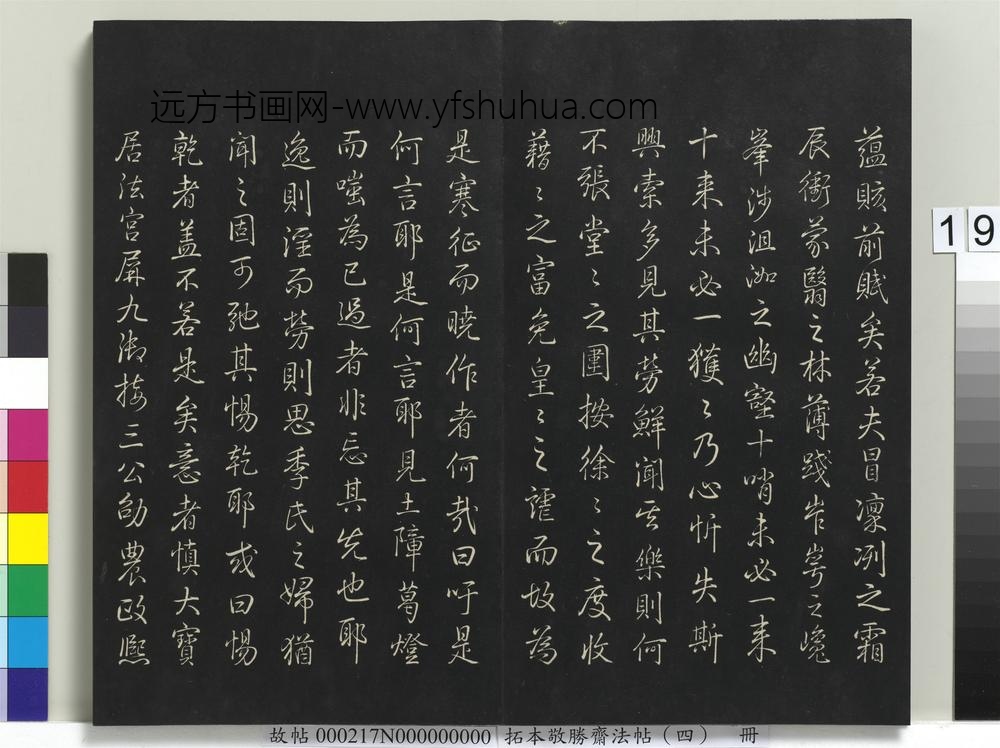 蕴賅前賦矣若夫冒凜冽之霜
辰衝蒙翳之林薄踐岝崿之巉
峯涉沮洳之幽壑十哨未必一来
十来未必一獲〻乃心忻失斯
興索多見其勞鮮聞其樂則何
不張堂〻之圍按徐〻之度收
藉〻之富免皇〻之謹而故為
是寒征而曉作者何哉曰吁是
何言耶是何言耶見土障葛燈
而嗤為已過者非忘其先也耶
逸則淫而勞則思季氏之婦猶
聞之固可弛其惕乾耶或曰惕
乾者盖不若是矣意者慎大寶
居法宫屏九御接三公劭農政熙
远方书画网-www.yfshuhua.com
19
故帖 000217N000000000 拓本敬勝齋法帖（四） 冊